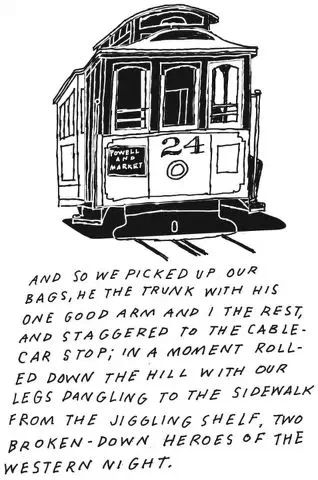 24
POWELL
AND
MARKET
0
AND SO WE PICKED UP OUR
BAGS, HE THE TRUNK WITH HIS
ONE GOOD ARM AND I THE REST,
AND STAGGERED TO THE CABLE-
CAR STOP; IN A MOMENT ROLL-
ED DOWN THE HILL WITH OUR
LEGS DANGLING TO THE SIDEWALK
FROM THE JIGGLING SHELF, TWO
BROKEN-DOWN HEROES OF THE
WESTERN NIGHT.